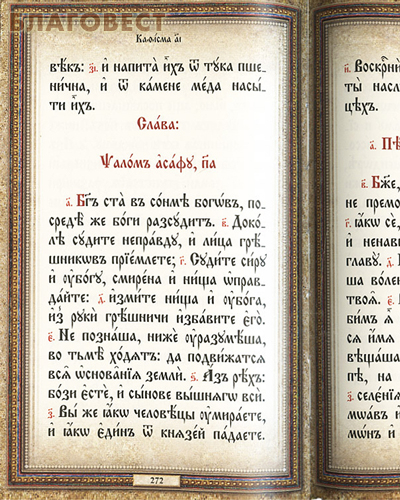 БЛАГОВЕСТ
Каѳі́сма а҃і
вѣ́къ: з҃і. и҆ напита̀ и҆̀хъ ѿ тꙋ́ка пше-
ни́чна, и҆ ѿ ка́мене ме́да насы́-
ти и҆̀хъ.
Сла́ва:
Ѱало́мъ а҆са́фꙋ, п҃а
а҃. Бг҃ъ ста̀ въ со́нмѣ богѡ́въ, по-
средѣ́ же бо́ги разсꙋ́дитъ. в҃. Доко́-
лѣ сꙋ́дите непра́вдꙋ, и҆ ли́ца грѣ́-
шникѡвъ прїе́млете; г҃. Сꙋди́те си́рꙋ
и҆ ᲂу҆бо́гꙋ, смире́на и҆ ни́ща ѡ҆прав-
да́йте: д҃. и҆зми́те ни́ща и҆ ᲂу҆бо́га,
и҆з̾ рꙋкѝ грѣ́шничи и҆зба́вите є҆го̀.
є҃. Не позна́ша, нижѐ ᲂу҆разꙋмѣ́ша,
во тьмѣ̀ хо́дѧтъ: да подви́жатсѧ
всѧ̑ ѡ҆снова̑нїѧ землѝ. ѕ҃. А҆́зъ рѣ́хъ:
бо́зи є҆стѐ, и҆ сы́нове вы́шнѧгѡ всѝ.
з҃. Вы́ же ꙗ҆́кѡ человѣ́цы ᲂу҆мира́ете,
и҆ ꙗ҆́кѡ є҆ди́нъ ѿ кнѧзе́й па́даете.
272
и҃. Воскр
ты̀ насл
цѣхъ.
а҃. Пѣ
в҃. Бж҃е,
не премо
г҃. ꙗ҆́кѡ сѐ,
и҆ ненави
главꙋ̀. д҃.
ша волен
твоѧ̑. є҃.
бимъ ѧ҆̀
сѧ и҆́мѧ
вѣща́ша
пѣ, на
з҃. селє́нїѧ
мѡа́въ и҆
мѡ́нъ и҆